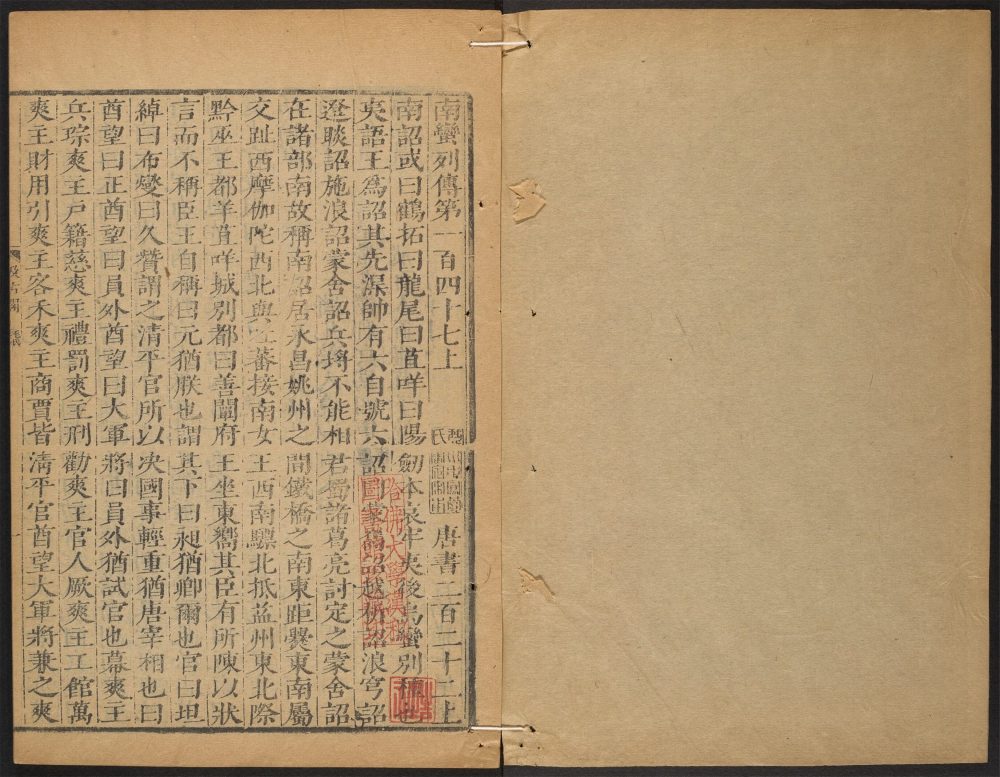 南蠻列傳第一百四十七上 唐書二百二十二上
南詔或曰鶴拓曰龍尾曰苴咩曰陽劒本哀牢夷後烏蠻別種也
夷語王爲詔其先渠帥有六自號六詔曰蒙巂詔越析詔浪穹詔
邆睒詔施浪詔蒙舍詔兵埒不能相君蜀諸葛亮討定之蒙舍詔
在諸部南故稱南詔居永昌姚州之間鐵橋之南東距爨東南屬
交趾西摩伽陀西北與吐蕃接南女王西南驃北抵益州東北際
黔巫王都羊苴咩城別都曰善闡府王坐東嚮其臣有所陳以狀
言而不稱臣王自稱曰元猶朕也謂其下曰昶猶卿爾也官曰坦
綽曰布燮曰久贊謂之清平官所以決國事輕重猶唐宰相也曰
酋望曰正酋望曰員外酋望曰大軍將曰員外猶試官也幕爽主
兵琮爽主戶籍慈爽主禮罰爽主刑勸爽主官人厥爽主工館萬
爽主財用引爽主客禾爽主商賈皆清平官酋望大軍將兼之爽
汲古閣
毛氏